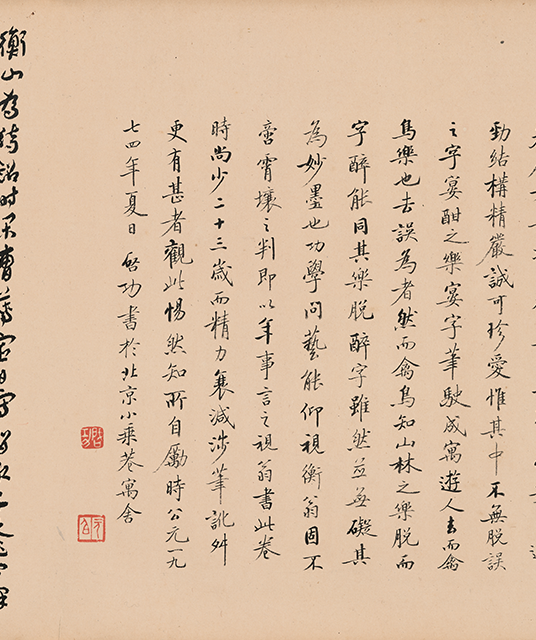 勁結構精嚴誠可珍愛惟其中不無脱誤
之字宴酣之樂宴字筆駛成寓遊人去而禽
鳥樂也去誤為者然而禽鳥知山林之樂脱而
字醉能同其樂脱醉字雖然並無礙其
為妙墨也功學問藝能仰視衡翁固不
啻霄壤之判即以年事言之視翁書此卷
時尚少二十三歲而精力衰減涉筆訛舛
更有甚者觀此惕然知所自勵時公元一九
七四年夏日啓功書於北京小乘巷寓舍
啓功
元白
衡山為